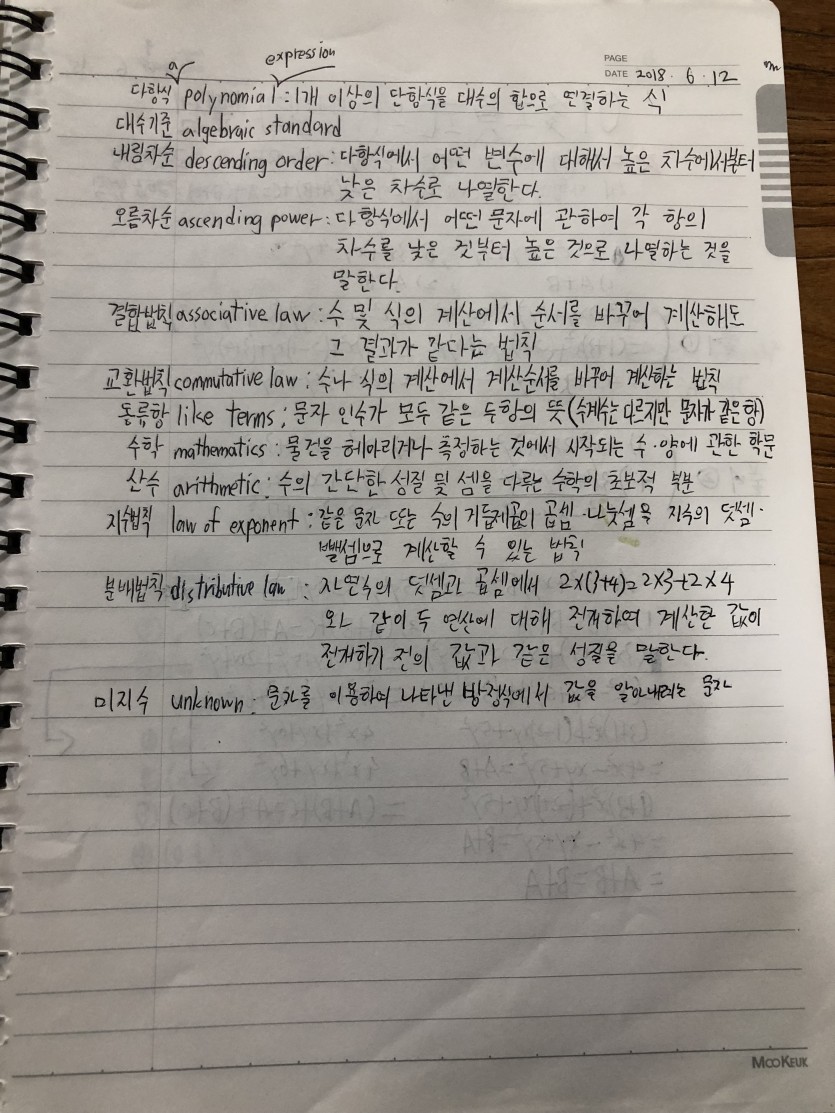 a expression
PAGE
DATE 2018. 6. 12
다항식 polynomial : 1개 이상의 단항식을 대수의 합으로 연결하는 식
대수기준 algebraic standard
내림차순 descending order : 다항식에서 어떤 변수에 대해서 높은 차수에서부터
낮은 차수로 나열한다.
오름차순 ascending power : 다항식에서 어떤 문자에 관하여 각 항의
차수를 낮은 것부터 높은 것으로 나열하는 것을
말한다.
결합법칙 associative law : 수 및 식의 계산에서 순서를 바꾸어 계산해도
그 결과가 같다는 법칙
교환법칙 commutative law : 수나 식의 계산에서 계산순서를 바꾸어 계산하는 법칙
동류항 like terms ; 문자 인수가 모두 같은 두항의 뜻 (수계수는 다르지만 문자가 같은 항)
수학 mathematics : 물건을 헤아리거나 측정하는 것에서 시작되는 수·양에 관한 학문
산수 arithmetic ; 수의 간단한 성질 및 셈을 다루는 수학의 초보적 부분
지수법칙 law of exponent : 같은 문자 또는 수의 거듭제곱의 곱셈·나눗셈을 지수의 덧셈·
뺄셈으로 계산할 수 있는 법칙
분배법칙 distributive law : 자연수의 덧셈과 곱셈에서 2×(3+4)=2×3+2×4
와 같이 두 연산에 대해 전개하여 계산한 값이
전개하기 전의 값과 같은 성질을 말한다.
미지수 unknown : 문자를 이용하여 나타낸 방정식에서 값을 알아내려는 문자
MOOKEUK